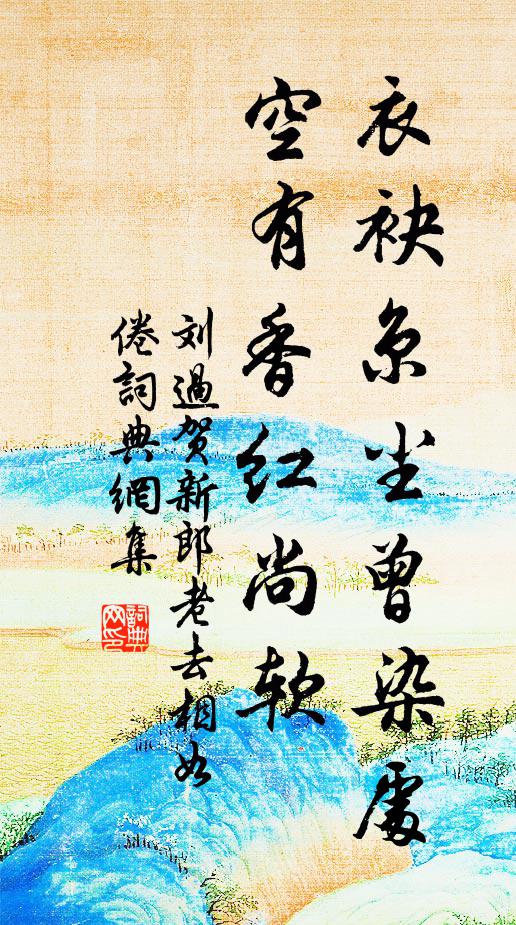 衣袂京尘曾染處
空有香红尚软
刘過贺新郎老去相如
倦詞典網集
詞典网印